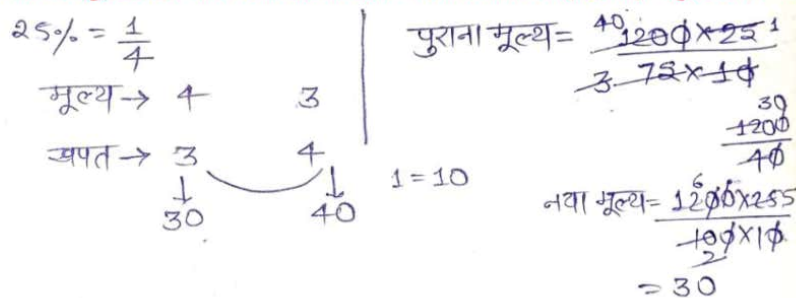 25% = 1/4
मूल्य → 4 3
खपत → 3 4
↓ ↓
30 40
1 = 10
पुराना मूल्य = 1200×25 / 75×10
40 1
3
30
1200 / 40
नया मूल्य = 1200×25 / 100×10
6 5
2
= 30